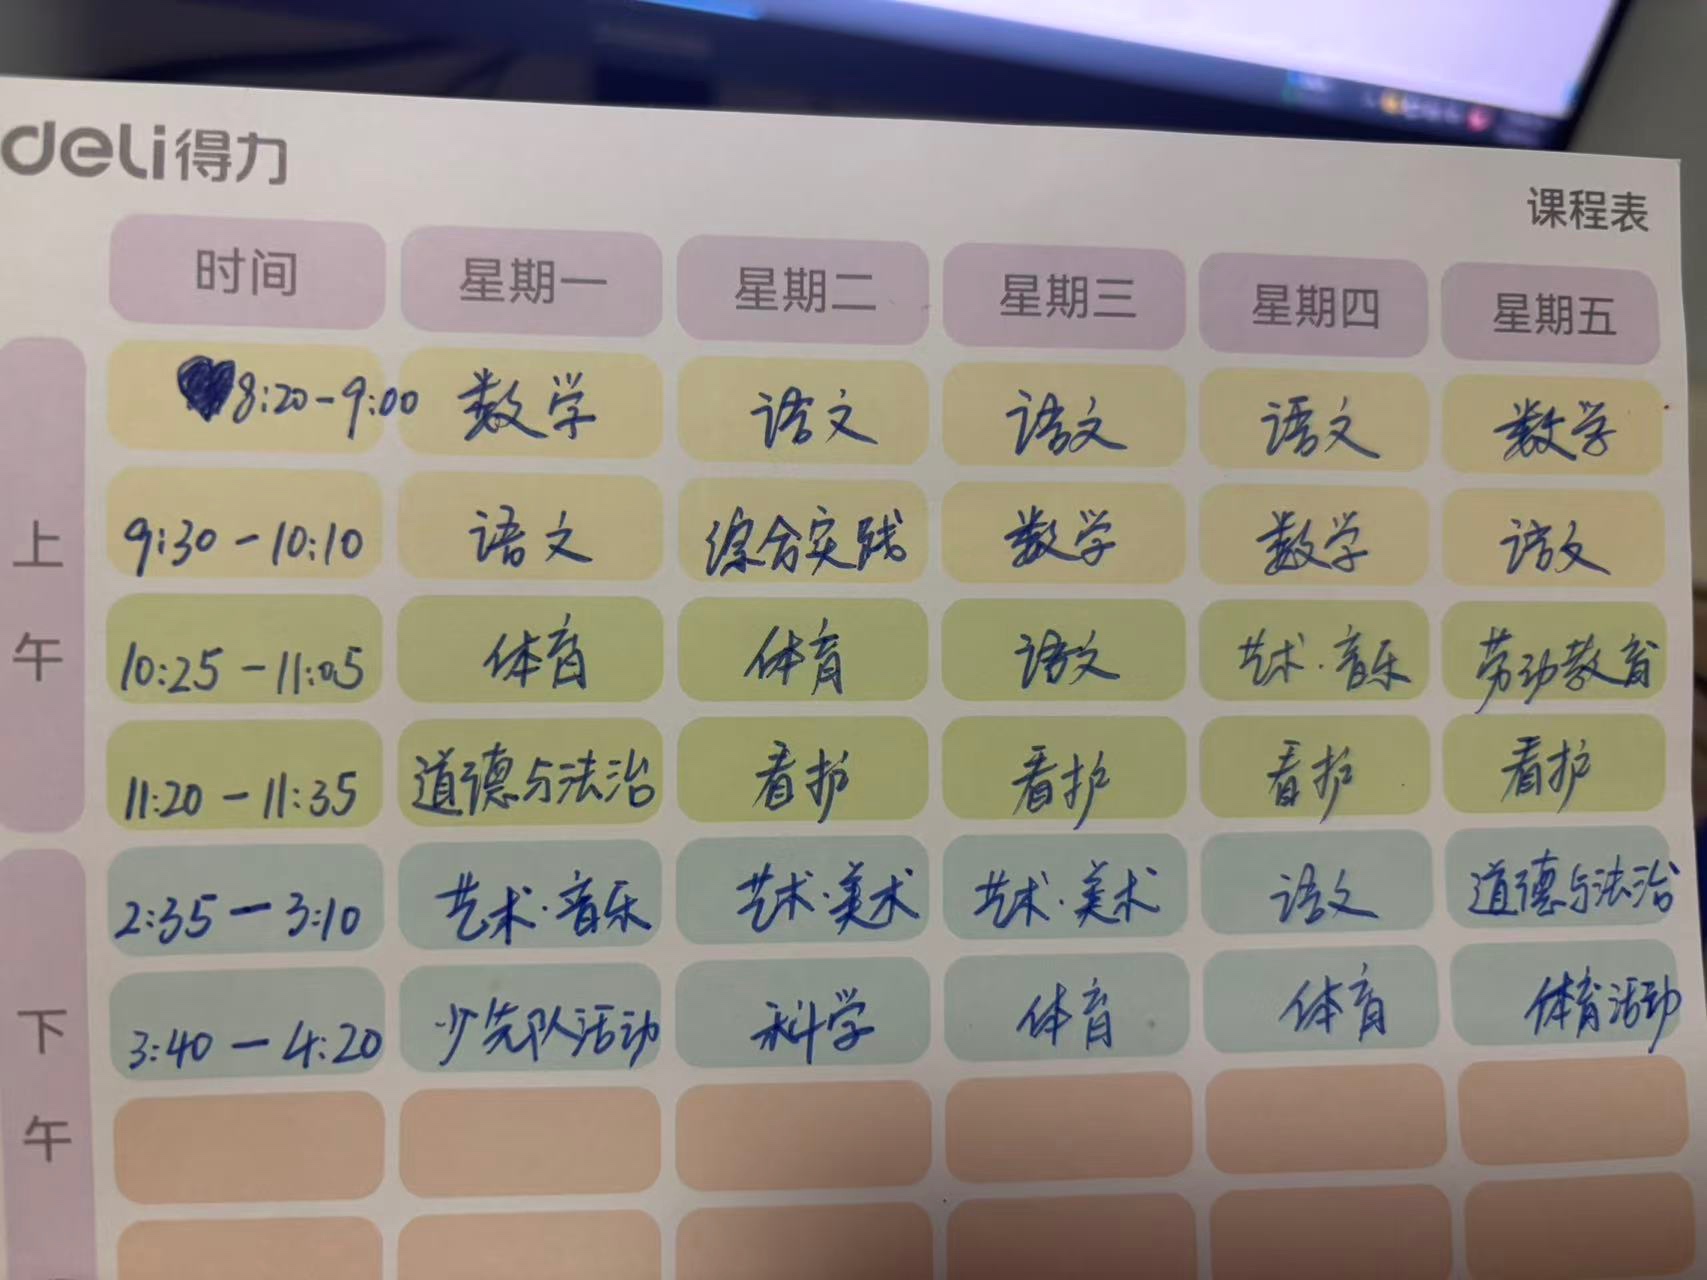 deli得力
课程表
时间 星期一 星期二 星期三 星期四 星期五
上午
8:20-9:00 数学 语文 语文 语文 数学
9:30-10:10 语文 综合实践 数学 数学 语文
10:25-11:05 体育 体育 语文 艺术·音乐 劳动教育
11:20-11:35 道德与法治 看护 看护 看护 看护
下午
2:35-3:10 艺术·音乐 艺术·美术 艺术·美术 语文 道德与法治
3:40-4:20 少先队活动 科学 体育 体育 体育活动